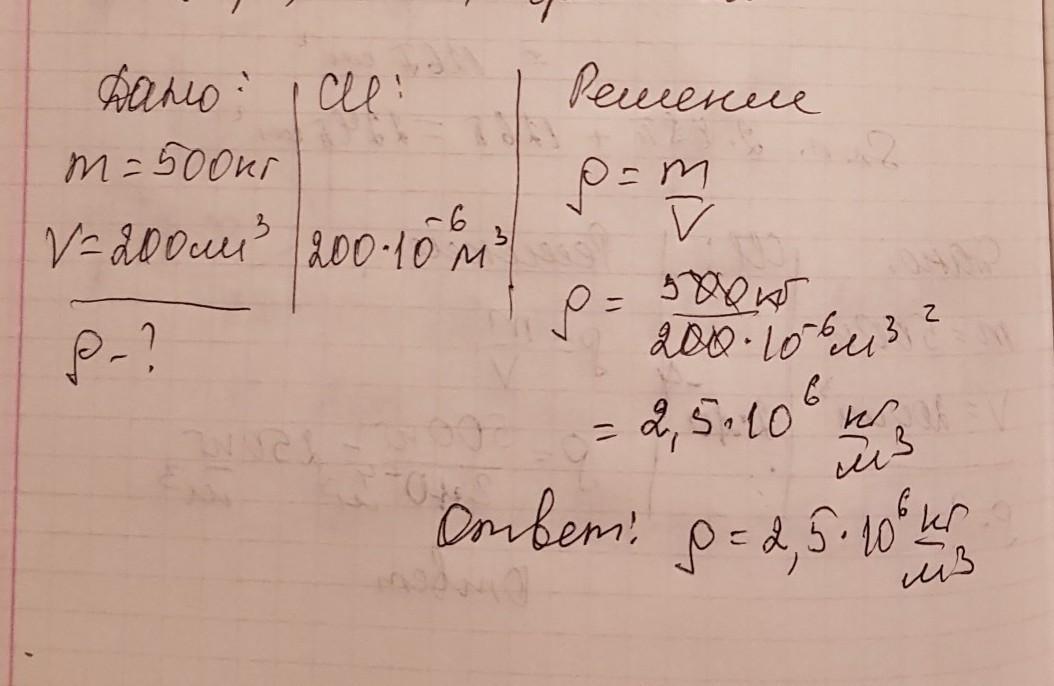 Дано:
m = 500кг
V = 200см³
ρ - ?
СИ:
200·10⁻⁶м³
Решение
ρ = m/V
ρ = 500кг/200·10⁻⁶м³ =
= 2,5·10⁶ кг/м³
Ответ: ρ = 2,5·10⁶ кг/м³